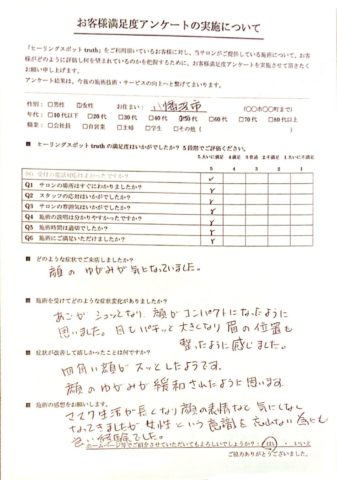 お客様満足度アンケートの実施について
「ヒーリングスポット truth」をご利用頂いているお客様に対し、当サロンがご提供している施術について、お客
様がどのように評価し何を望まれているのかを把握するために、お客様満足度アンケートを実施させて頂きたく
お願い申し上げます。
アンケート結果は、今後の施術技術・サービスの向上へと繋げてまいります。
性別: □男性 ☑女性 お住まい: 八幡浜市 (○○市○○町まで)
年代: □10代以下 □20代 □30代 □40代 ☑50代 □60代 □70代 □80代以上
職業: □会社員 □自営業 □主婦 □学生 □その他 ( )
■ ヒーリングスポット truth の満足度はいかがでしたか? 5段階でご評価ください。
5.大いに満足 4.満足 3.普通 2.不満足 1.大いに不満足
5 4 3 2 1
Q1 サロンの場所はすぐにわかりましたか? ✓
Q2 スタッフの応対はいかがでしたか? ✓
Q3 サロンの雰囲気はいかがでしたか? ✓
Q4 施術の説明は分かりやすかったですか ✓
Q5 施術時間は適切でしたか? ✓
Q6 施術にご満足いただけましたか? ✓
■ どのような症状でご来店しましたか?
顔のゆがみが気になっていました。
■ 施術を受けてどのような症状変化がありましたか?
あごがシュッとなり、顔がコンパクトになったように
思いました。目もパチッと大きくなり眉の位置も
整ったように感じました。
■ 症状が改善して嬉しかったことは何ですか?
四角い顔がスッとしたようです。
顔のゆがみが緩和されたように思います。
■ 施術の感想をお願いします。
マスク生活が長くなり顔の表情など気にしなく
なってきましたが女性という意識を忘れない為にも
良い経験でした。
ホームページ等でご紹介させていただいてもよろしいでしょうか? はい ・ いいえ
ご協力ありがとうございました。